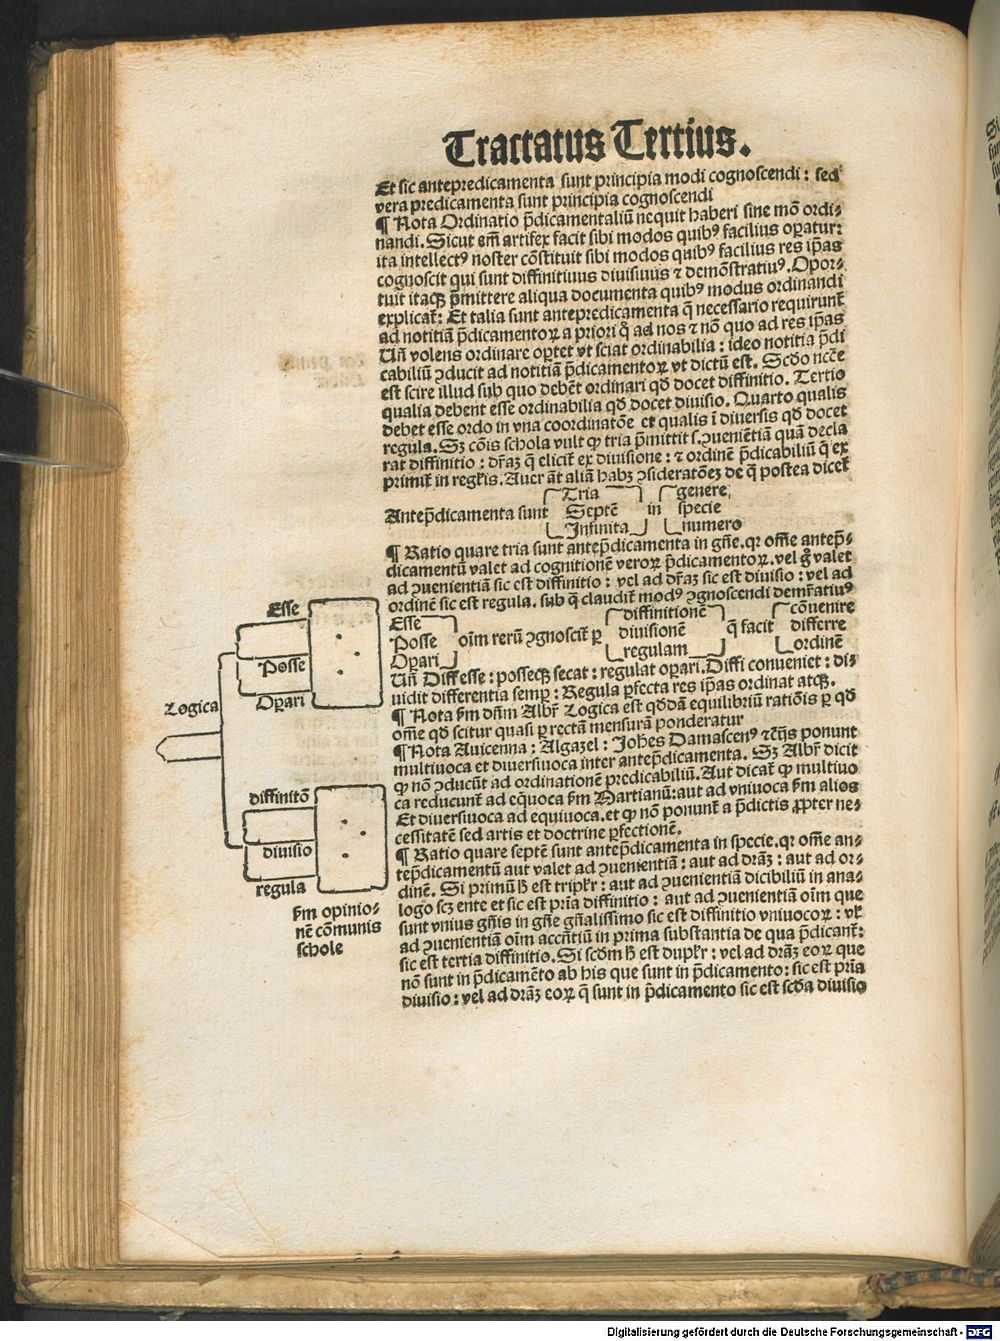 Tractatus Tertius.
Et sic antepredicamenta sunt principia modi cognoscendi : sed
vera predicamenta sunt principia cognoscendi
¶ Nota Ordinatio p̄dicamentaliū nequit haberi sine mō ordi⸗
nandi. Sicut em̄ artifex facit sibi modos quibꝰ facilius oꝑatur:
ita intellectꝰ noster cōstituit sibi modos quibꝰ facilius res ip̄as
cognoscit qui sunt diffinitiuus diuisiuus ⁊ demōstratiuꝰ. Opor⸗
tuit itaqꝫ p̄mittere aliqua documenta quibꝰ modus ordinandi
explicat̄: Et talia sunt antepredicamenta q̄ necessario requirunt̄
ad notitiā p̄dicamentoꝝ a priori qͦ ad nos ⁊ nō quo ad res ip̄as
Un̄ volens ordinare oꝑtet vt sciat ordinabilia : ideo notitia p̄di
cabiliū ꝯducit ad notitiā p̄dicamentoꝝ vt dictū est. Scd̄o ncc̄e
est scire illud sub quo debēt ordinari qd̄ docet diffinitio. Tertio
qualia debent esse ordinabilia qd̄ docet diuisio. Quarto qualis
debet esse ordo in vna coordinatōe et qualis ī diuersis qd̄ docet
regula. Sꝫ cōis schola vult ꝙ tria p̄mittit s. ꝯuenientiā quā decla
rat diffinitio : dr̄aꝫ q̄ elicit̄ ex diuisione : ⁊ ordinē p̄dicabiliū q̄ ex
primit̄ in regl̄is. Auer āt aliā habꝫ ꝯsideratōeꝫ de q̄ postea dicet̄
Antep̄dicamenta sunt Tria Septē Infinita in genere specie numero
¶ Ratio quare tria sunt antep̄dicamenta in gn̄e. qꝛ om̄e antep̄⸗
dicamentū valet ad cognitionē veroꝝ p̄dicamentoꝝ. vel gͦ valet
ad ꝯuenientiā sic est diffinitio : vel ad dr̄aꝫ sic est diuisio : vel ad
ordinē sic est regula. sub q̄ claudit̄ modꝰ ꝯgnoscendi demr̄atiuꝰ
Esse Posse Oꝑari oīm rerū ꝯgnoscit̄ ꝑ diffinitionē diuisionē regulam q̄ facit cōuenire differre ordinē
Un̄ Diff esse : posseqꝫ secat : regulat oꝑari. Diffi conueniet : di⸗
uidit differentia semꝑ : Regula ꝑfecta res ip̄as ordinat atqꝫ.
¶ Nota ẜm dn̄m Albr̄ Logica est qd̄dā equilibriū ratiōis ꝑ qd̄
om̄e qd̄ scitur quasi ꝑ rectā mensurā ponderatur
¶ Nota Auicenna : Algazel : Joh̄es Damascenꝰ ⁊c̄ijs ponunt
multiuoca et diuersiuoca inter antep̄dicamenta. Sꝫ Albr̄ dicit
ꝙ nō ꝯducūt ad ordinationē predicabiliū. Aut dicat̄ ꝙ multiuo
ca reducunt̄ ad eq̄uoca ẜm Martianū: aut ad vniuoca ẜm alios
Et diuersiuoca ad equiuoca. et ꝙ nō ponunt̄ a p̄dictis ꝓpter ne⸗
cessitatē sed artis et doctrine ꝑfectionē.
¶ Ratio quare septē sunt antep̄dicamenta in specie. qꝛ om̄e an⸗
tep̄dicamentū aut valet ad ꝯuenientiā : aut ad drāꝫ : aut ad or⸗
dinē. Si primū h̄ est tripl̄r : aut ad ꝯuenientiā dicibiliū in ana⸗
logo scꝫ ente et sic est prīa diffinitio : aut ad ꝯuenientiā oīm que
sunt vnius gn̄is in gn̄e gn̄alissimo sic est diffinitio vniuocoꝝ : vl̄
ad ꝯuenientiā oīm accn̄tiū in prima substantia de qua p̄dicant̄:
sic est tertia diffinitio. Si scd̄m h̄ est dupl̄r : vel ad drāꝫ eoꝝ que
nō sunt in p̄dicamēto ab his que sunt in p̄dicamento : sic est prīa
diuisio : vel ad drāꝫ eoꝝ q̄ sunt in p̄dicamento sic est scd̄a diuisio
Esse
Posse
Oꝑari
Logica
diffinitō
diuisio
regula
ẜm opinio⸗
nē cōmunis
schole
Digitalisierung gefördert durch die Deutsche Forschungsgemeinschaft - DFG